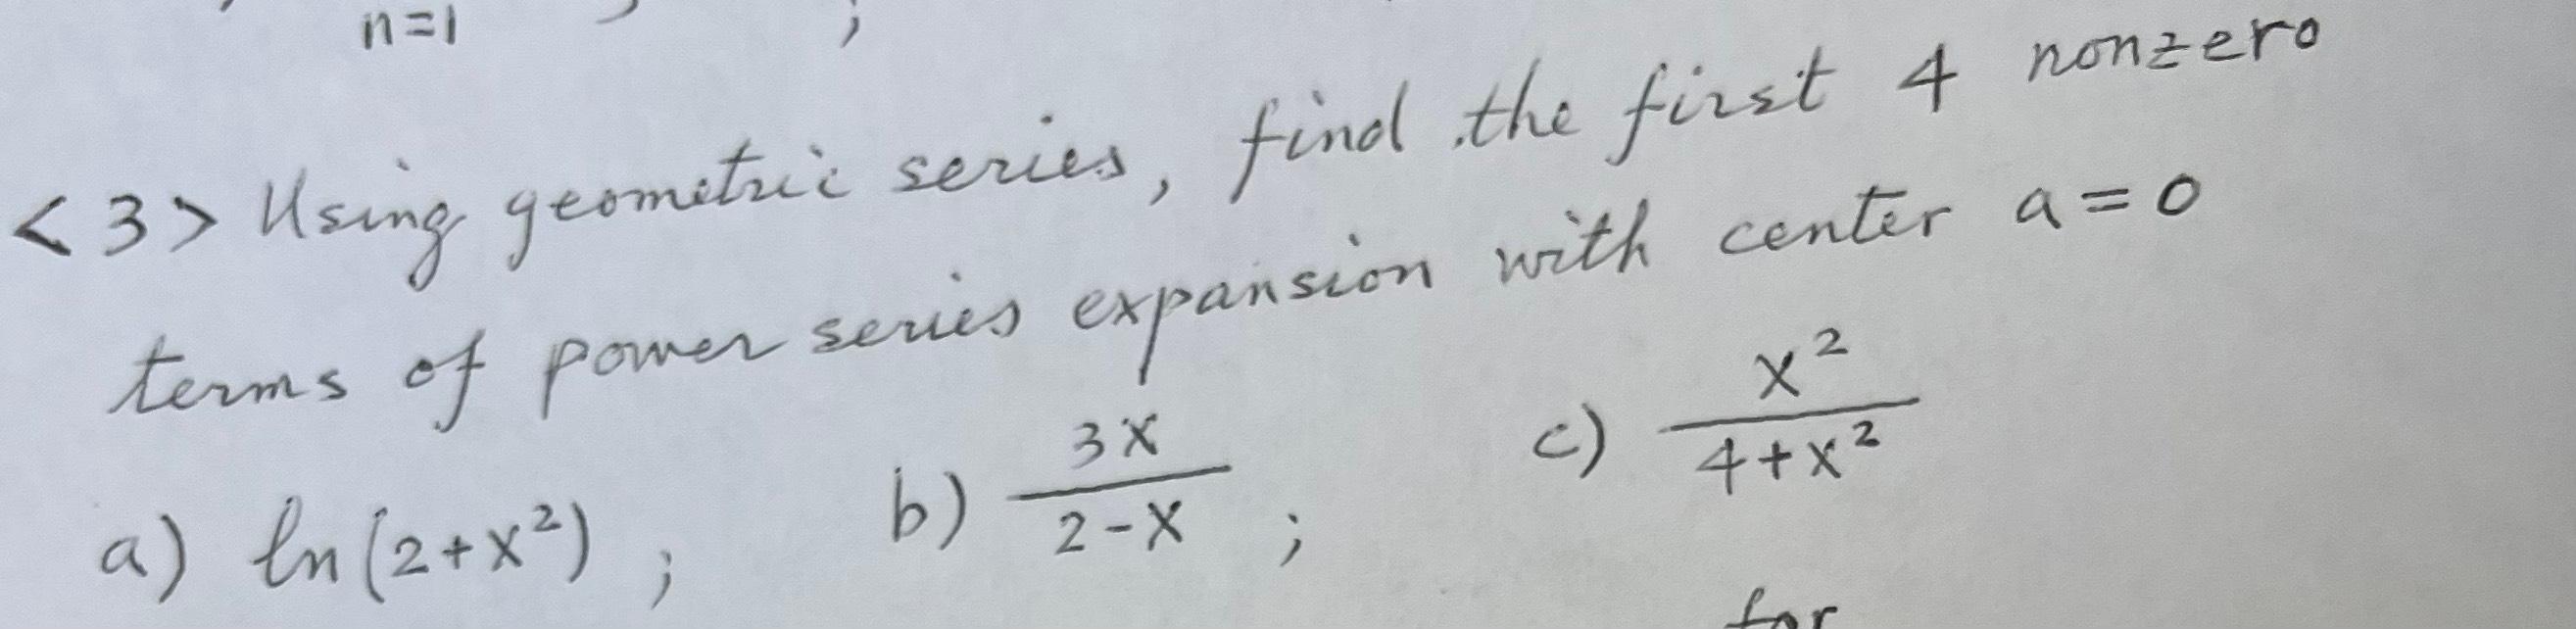 n=1 ;
<3> Using geometric series, find the first 4 nonzero
terms of power series expansion with center a=0
a) ln(2+x²) ; b) 3x/(2-x) ; c) x²/(4+x²)
for